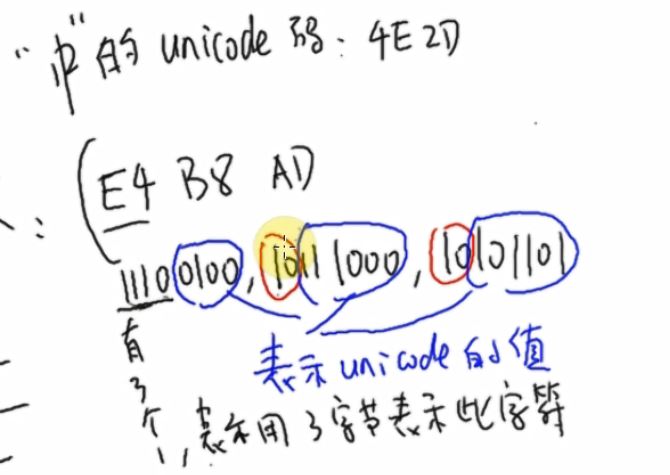 "中"的 unicode 码: 4E2D
: (E4 B8 AD
11100100, 10111000, 10101101
表示 unicode 的值
有3个1, 表示用3字节表示此字符